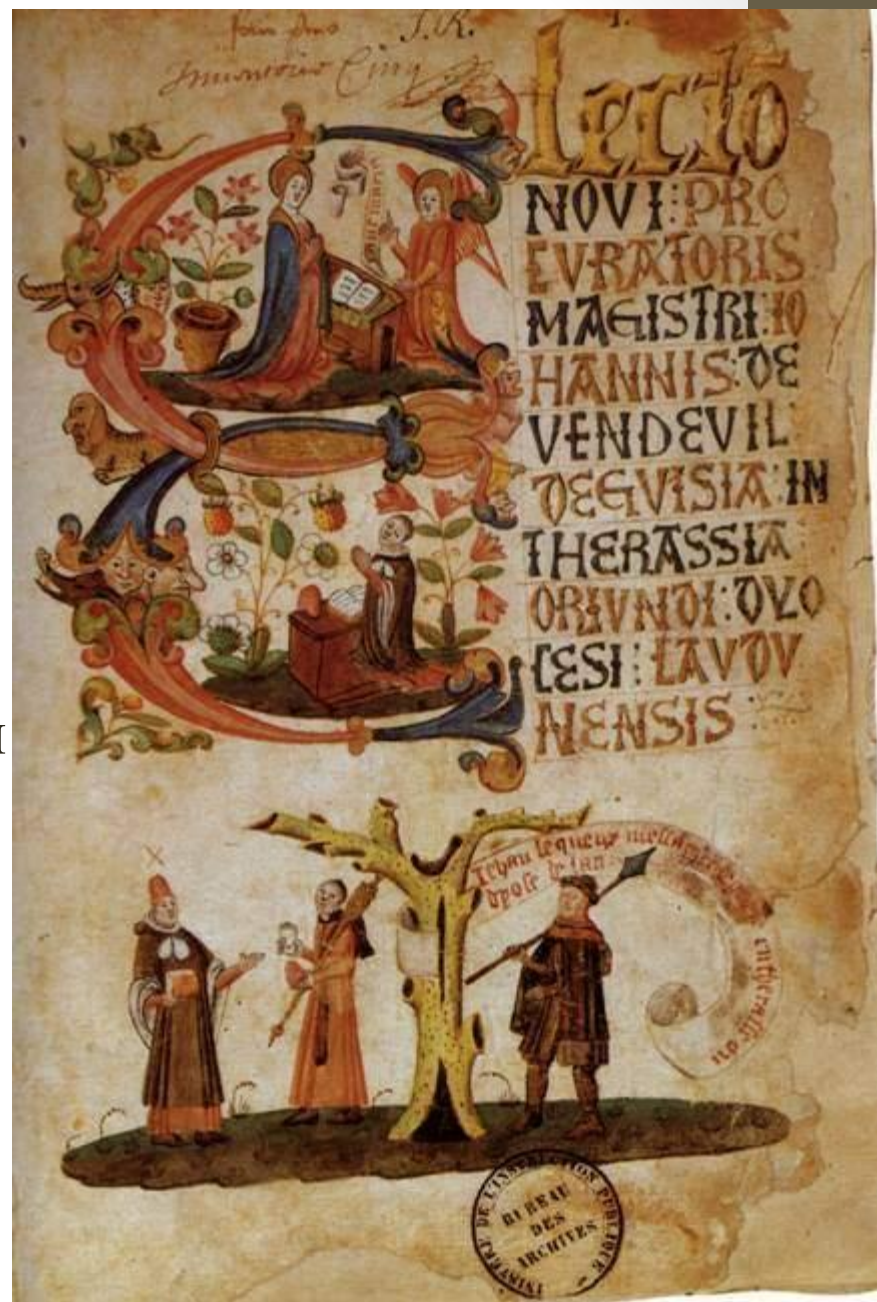 Cinq
Electō
NOVI : PRO
CVRATORIS
MAGISTRI : IO
HANNIS : DE
VENDEVIL
DEGVISIA : IN
THERASSIA
ORIVNDI : DYO
CESI : LAVDV
NENSIS
Jehan lequeux
MINISTÈRE DE L'INSTRUCTION PUBLIQUE
BUREAU
DES
ARCHIVES